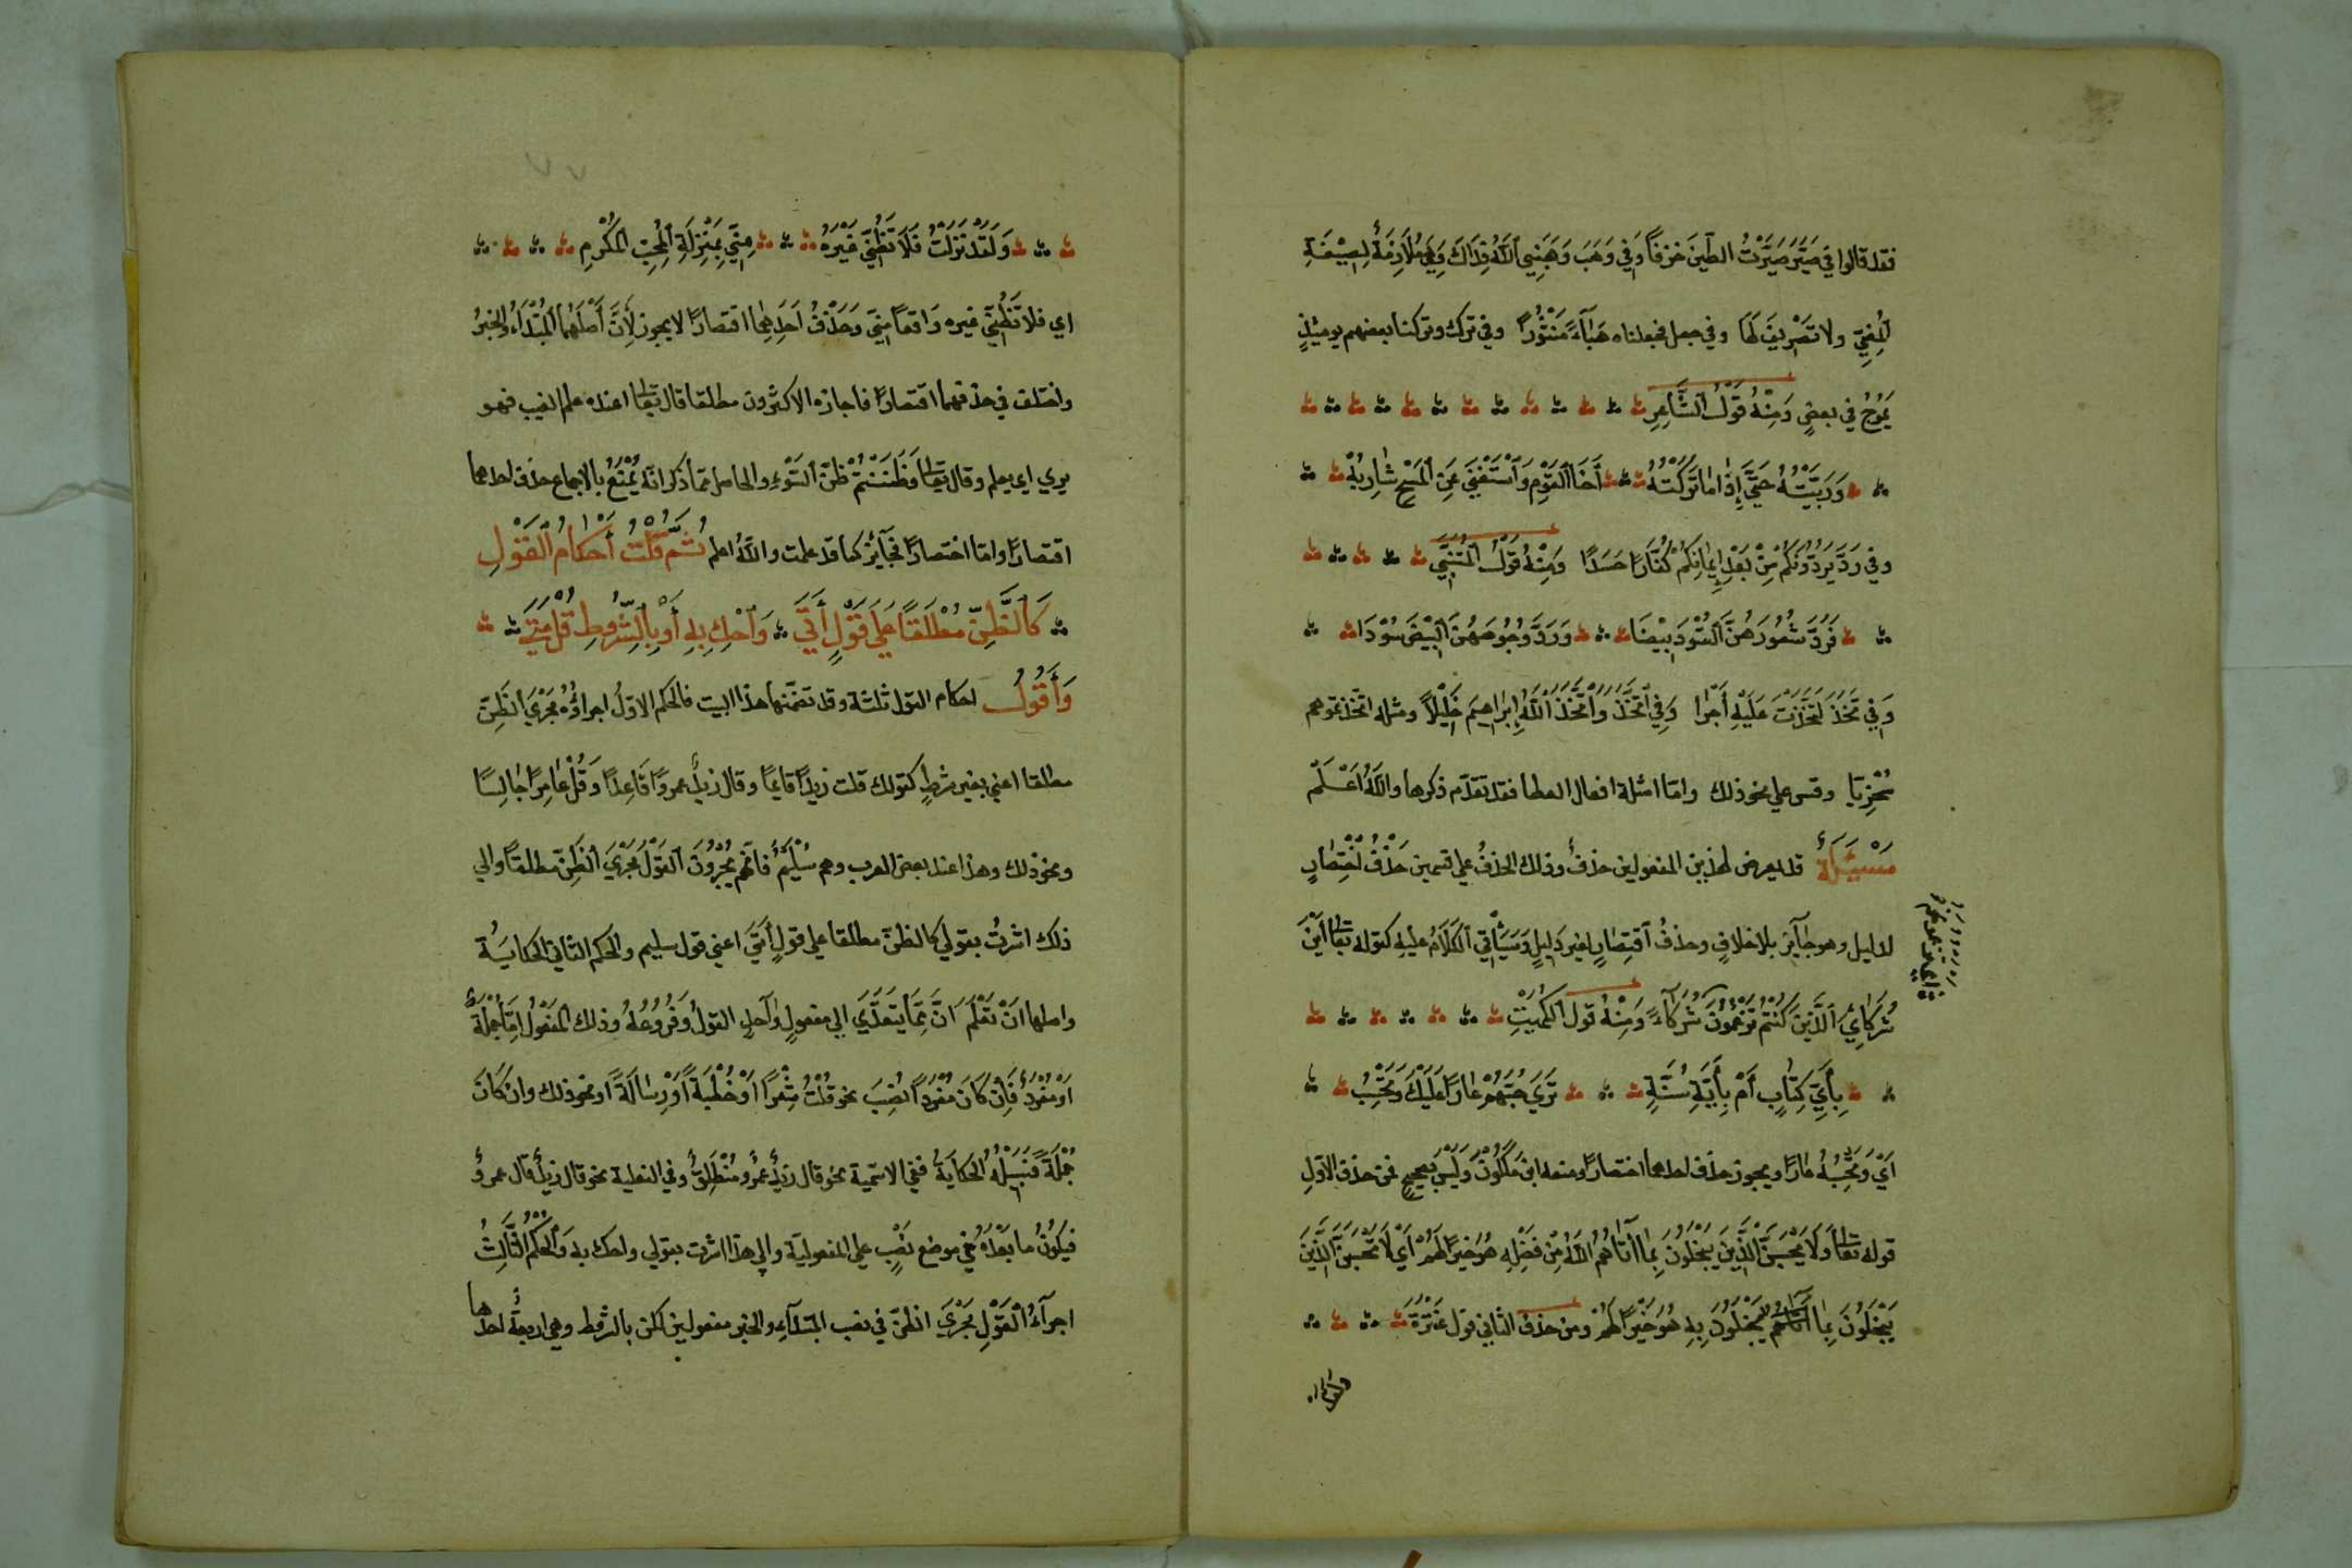 فقد قالوا في صَيَّرَ صَيَّرْتُ الطينَ خزفاً وَفي وَهَبَ وَهَبَنِي اَللّٰهُ فِدَاكَ وَهِيَ مُلَازِمَةٌ لِصِيْغَةِ
اَلْمُضِيِّ ولا تَصْرِيفَ لَهَا وفي جعل فجعلناه هَبَآءً مَنْثُورًا وفي ترك وتركنا بعضهم يومئذٍ
يَمُوجُ في بعضٍ وَمِنْهُ قَوْلُ اَلشَّاعِرِ
وَرَبَّيْتُهُ حَتَّى إِذَا مَا تَرَكْتُهُ أَخَا اَلْقَوْمِ وَاَسْتَغْنَى عَنِ اَلْمَسْحِ شَارِبُهْ
وفي رَدَّ يَرُدُّونَكُمْ مِنْ بَعْدِ إِيمَانِكُمْ كُفَّارًا حَسَدًا وَمِنْهُ قَوْلُ اَلْمُتَنَبِّي
فَرَدَّ شُعُورَهُنَّ اَلسُّودَ بِيْضَا وَرَدَّ وُجُوهَهُنَّ اَلْبِيْضَ سُوْدَا
وَفي تَخِذَ لَتَخِذْتَ عَلَيْهِ أَجْرًا وَفِي اَتَّخَذَ وَاَتَّخَذَ اَللّٰهُ إِبْرَاهِيمَ خَلِيْلًا ومثله اتخذتموهم
سُخْرِيًا وقس علي نحو ذلك واما امثلة افعال العطا فقد تقدّم ذكرها واللّٰهُ اَعْلَم
مَسْئَلَةٌ قد يعرض لهذين المفعولين حذفٌ وذلك الحذفُ علي قسمين حَذْفُ اَخْتِصَارٍ
لدليل وهو جَآيزٌ بلا خلافٍ وحذفُ اَقْتِصَارٍ لغير دَلِيلٍ وَسَيَأْتِي اَلْكَلَامُ عَليهِ كقوله تَعَالَى أَيْنَ
شُرَكَائِيَ اَلَّذِينَ كُنْتُمْ تَزْعُمُونَ شُرَكَآءَ وَمِنْهُ قول اَلْكُمَيْتِ
بِأَيِّ كِتَابٍ أَمْ بِأَيَّةِ سُنَّةٍ تَرَى حُبَّهُمْ عَارًا عَلَيْكَ وَتَحْسِبُ
اَيْ وَتَحْسِبُهُ عَارًا ويجوز حذف احدهما اختصارًا ومنعه ابن مَلكُوْن وَلَيْسَ بصحيح فمن حذف الاوّلِ
قوله تعَالَى وَلَا يَحْسَبَنَّ اَلَّذِينَ يَبْخَلُونَ بِمَا آتَاهُمُ اَللّٰهُ مِنْ فَضْلِهِ هُوَ خَيْرًا لَهُمْ أَيْ لَا تَحْسَبَنَّ اَلَّذِينَ
يَبْخَلُونَ بِمَا يَبْخَلُونَ بِهِ هُوَ خَيْرًا لَهُمْ ومن حذف الثاني قول عَنْتَرَةَ
وَلَقَدْ نَزَلْتِ فَلَا تَظُنِّي غَيْرَهُ مِنِّي بِمَنْزِلَةِ اَلْمُحِبِّ اَلْمُكْرَمِ
اي فلا تَظُنِّي غيره وَاقعاً مِنِّي وَحَذْفُ اَحَدِهِمَا اقتصارًا لا يجوز لِأَنَّ أَصْلَهُمَا اَلْمُبْتَدَاءُ والخبرُ
واختلف في حذفهما اقتصارًا فاجازه الاكثرون مطلقا قال تعَالَى اعنده علم الغيب فهو
يري اي يعلم وقال تعَالَى وَظَنَنْتُمْ ظَنَّ اَلسَّوْءِ والحاصل مما ذكر انّه يُمْنَعُ بالاجماع حذف احدهما
اقتصارًا وامّا اختصارًا فجآيزٌ كما قد علمت واللّٰهُ اعلم ثُمَّ قُلْتُ أَحْكَامُ اَلْقَوْلِ
كَالظَّنِّ مُطْلَقًا عَلَى قَوْلٍ أَتَى وَاَحْكِ بِهِ أَوْ بِالشُّرُوطِ قُلْ مَتَى
وَأَقُولُ احكام القول ثلثة وقد تضمّنها هذا البيت فالحكم الاوّلُ اجراؤُهُ مَجْرَى اَلظَّنِّ
مطلقا اعني بغير شرطٍ كقولك قلت زيدًا قايمًا وقال زيدٌ عمروًا قَاعِدًا وَقُلْ عَامِرًا جَالِسًا
ونحو ذلك وهذا عند بعض العرب وهم سُلَيْمٌ فانّهم يُجْرُونَ اَلْقَوْلَ مَجْرَى اَلظَّنِّ مطلقًا والي
ذلك اشرتُ بقولي كالظنّ مطلقا علي قولٍ أَتَى اعني قول سليم والحكم الثاني الحكايَةُ
واصلها انْ تَعْلَمَ انَّ مِمَّا يَتَعَدَّي الي مفعولٍ وَاحدٍ القولُ وَفُرُوعُهُ وذلك اَلْمَفْعُولُ إِمَّا جُمْلَةٌ
اَوْ مُفْرَدٌ فَإِنْ كَانَ مُفْرَدًا نُصِبَ نحو قُلْتُ شِعْرًا اَوْ خُطْبَةً اَوْ رِسَالَةً او نحو ذلك وان كَانَ
جُمْلَةً فَسَبِيْلُهُ الحكايةُ ففي الاسميّة نحو قال زيدٌ عمرٌو مُنْطَلِقٌ وفي الفعلية نحو قال زيدٌ قال عمروٌ
فيكُونُ ما بَعْدَهُ في موضع نَصْبٍ علي المفعوليّة والي هذا اشرت بقولي واحك به وَاَلْحُكْمُ اَلثَّالِثُ
اجرآءُ اَلْقَوْلِ مَجْرَي اَلظنّ في نصب المبتدآءِ والخبر مفعولين لكن بالشروط وهي اربعةٌ احدها